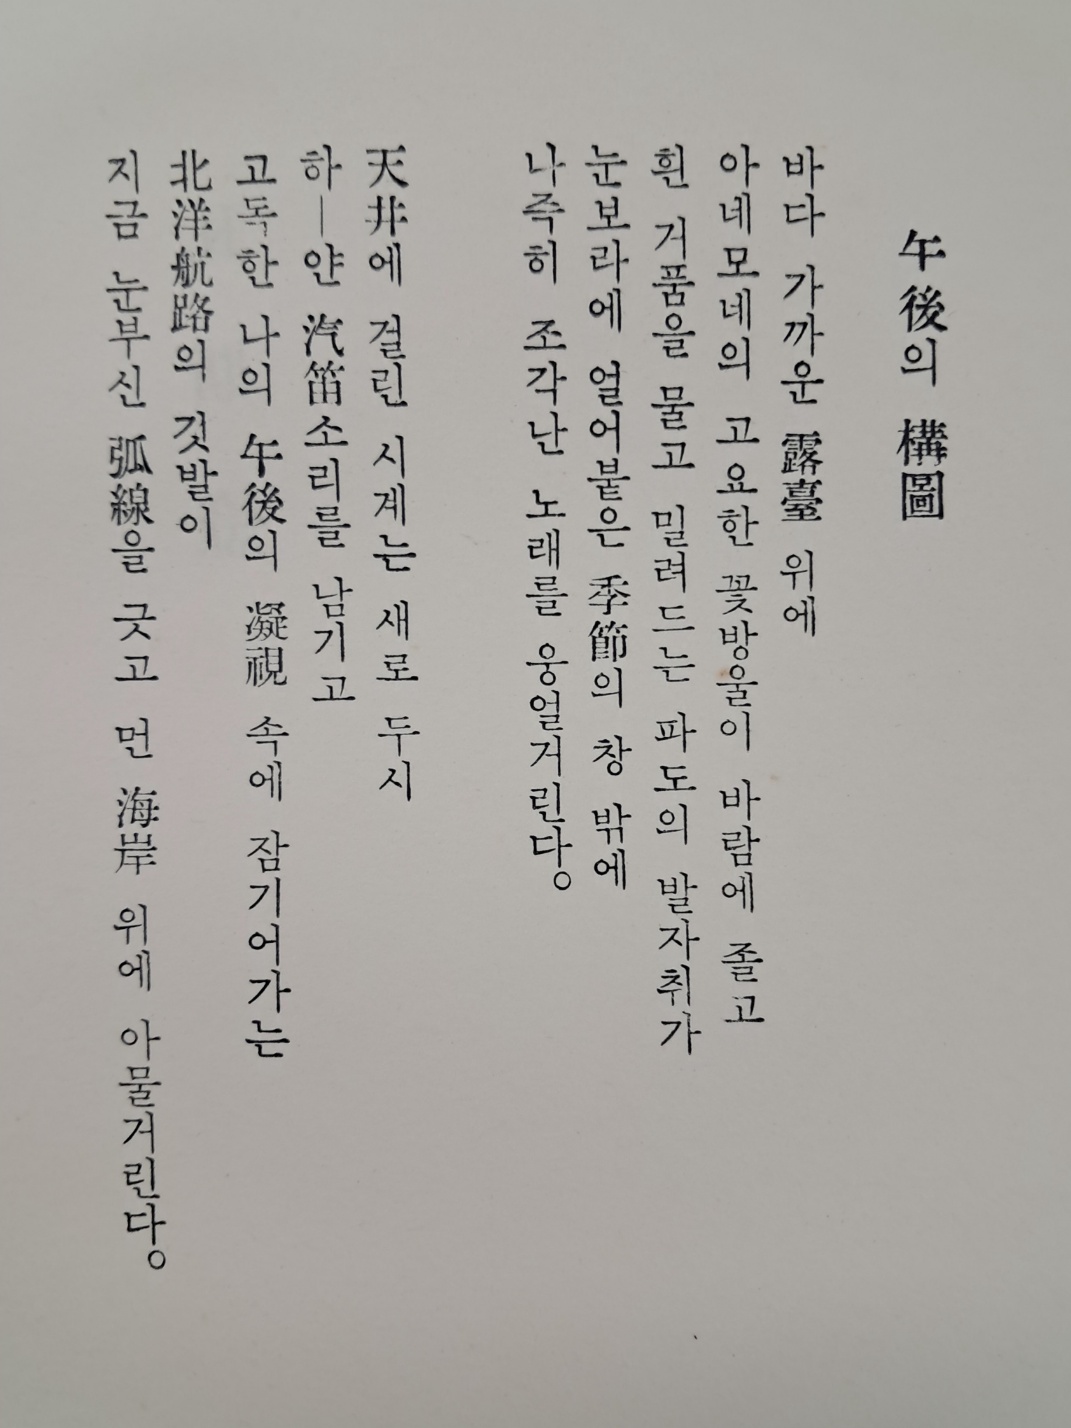 午後의 構圖
바다 가까운 露臺 위에
아네모네의 고요한 꽃방울이 바람에 졸고
흰 거품을 물고 밀려드는 파도의 발자취가
눈보라에 얼어붙은 季節의 창 밖에
나즉히 조각난 노래를 웅얼거린다。
天井에 걸린 시계는 새로 두시
하―얀 汽笛소리를 남기고
고독한 나의 午後의 凝視 속에 잠기어가는
北洋航路의 깃발이
지금 눈부신 弧線을 긋고 먼 海岸 위에 아물거린다。